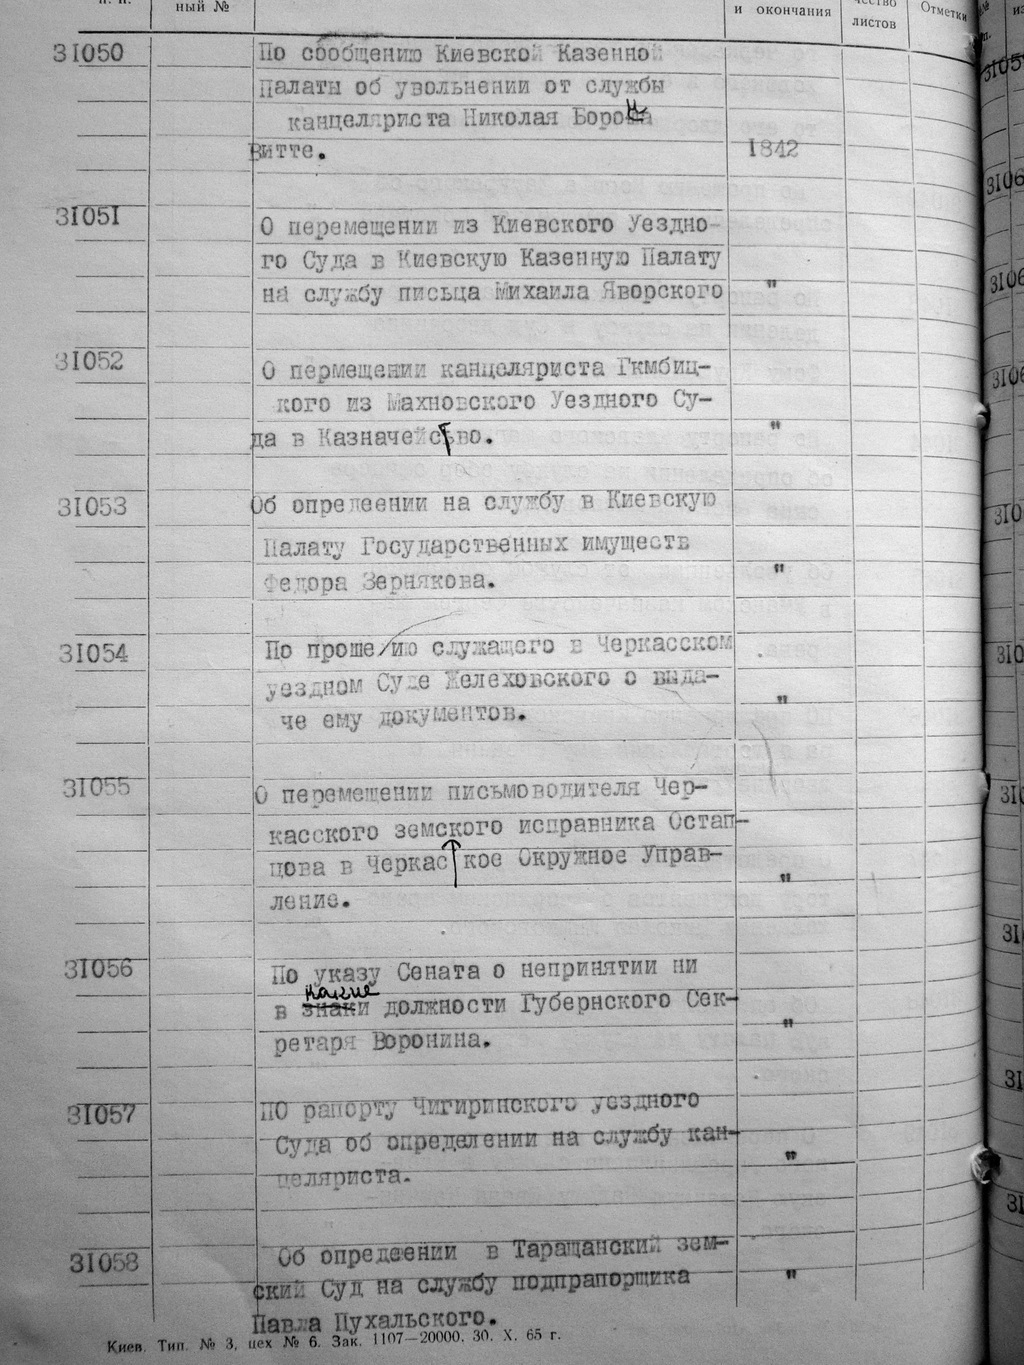 п. п.
ный №
и окончания
чество
листов
Отметки
31050
По сообщению Киевской Казенной
Палаты об увольнении от службы
канцеляриста Николая Бороца
Витте.
1842
31051
О перемещении из Киевского Уездно-
го Суда в Киевскую Казенную Палату
на службу письца Михаила Яворского
"
31052
О пермещении канцеляриста Гкмбиц-
кого из Махновского Уездного Су-
да в Казначейство.
"
31053
Об опредеении на службу в Киевскую
Палату Государственных имуществ
Федора Зернякова.
"
31054
По проше/ию служащего в Черкасском
уездном Суде Желеховского о выда-
че ему документов.
"
31055
О перемещении письмоводителя Чер-
касского земского исправника Остап-
цова в Черкас кое Окружное Управ-
ление.
"
31056
По указу Сената о непринятии ни
какие
в знаки должности Губернского Сек-
ретаря Воронина.
"
31057
ПО рапорту Чигиринского уездного
Суда об определении на службу кан-
целяриста.
"
31058
Об опредеении в Таращанский зем-
ский Суд на службу подпрапорщика
Павла Пухальского.
"
Киев. Тип. № 3, цех № 6. Зак. 1107—20000. 30. X. 65 г.